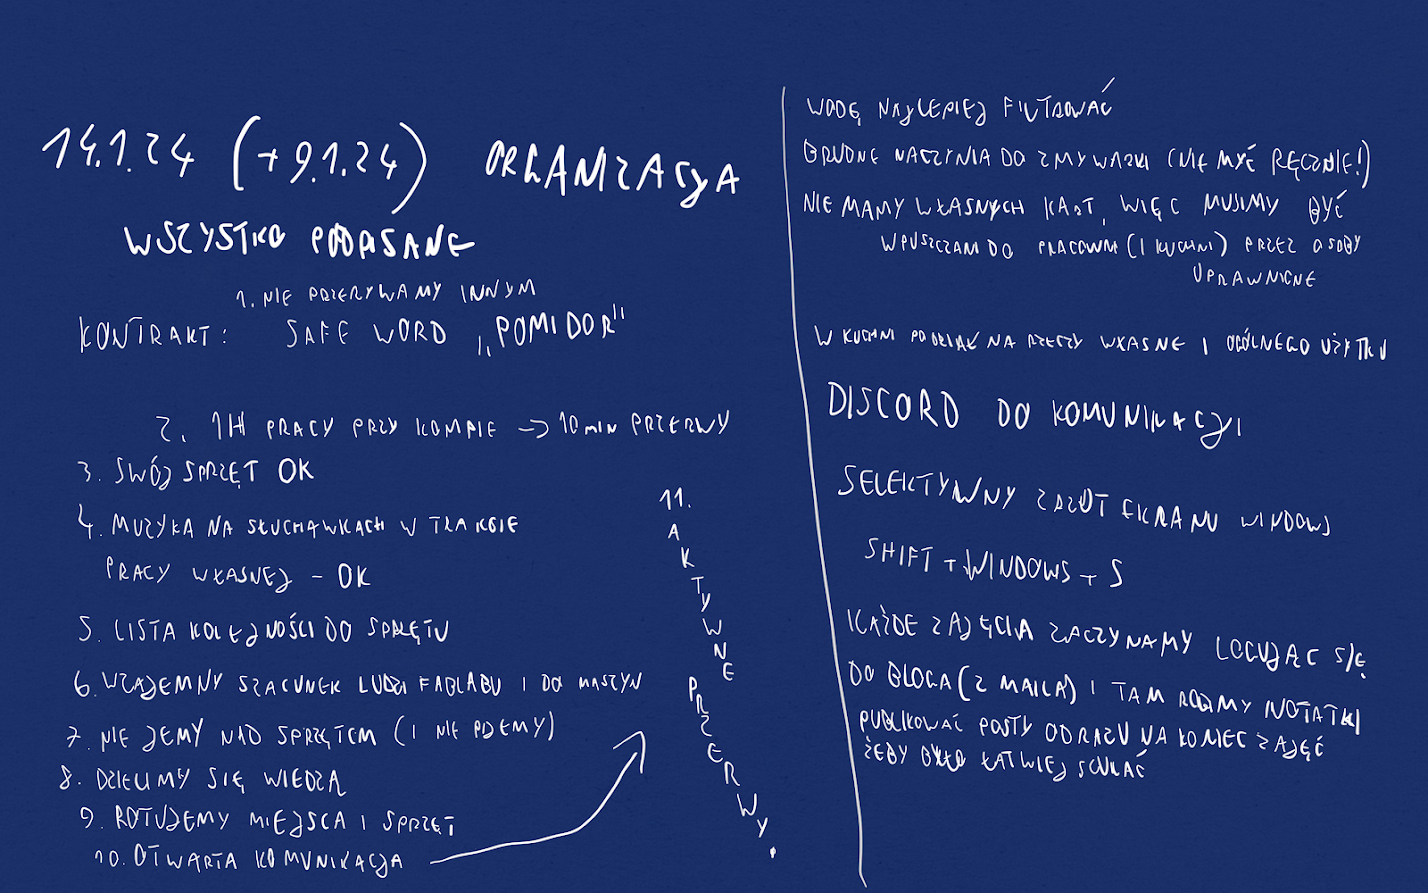 14.1.24 (+9.1.24) ORGANIZACJA
WSZYSTKO PODPISANE
1. NIE PRZERYWAMY INNYM
KONTRAKT: SAFE WORD „POMIDOR"
2. 1H PRACY PRZY KOMPIE -> 10 min PRZERWY
3. SWÓJ SPRZĘT OK
4. MUZYKA NA SŁUCHAWKACH W TRAKCIE
PRACY WŁASNEJ - OK
5. LISTA KOLEJNOŚCI DO SPRZĘTU
6. WZAJEMNY SZACUNEK LUDZI FABLABU I DO MASZYN
7. NIE JEMY NAD SPRZĘTEM (I NIE PIJEMY)
8. DZIELIMY SIĘ WIEDZĄ
9. ROTUJEMY MIEJSCA I SPRZĘT
10. OTWARTA KOMUNIKACJA
11. AKTYWNE PRZERWY.
WODĘ NAJLEPIEJ FILTROWAĆ
BRUDNE NACZYNIA DO ZMYWARKI (NIE MYĆ RĘCZNIE!)
NIE MAMY WŁASNYCH KART, WIĘC MUSIMY BYĆ
WPUSZCZANI DO PRACOWNI (I KUCHNI) PRZEZ OSOBY
UPRAWNIONE
W KUCHNI PODZIAŁ NA RZECZY WŁASNE I OGÓLNEGO UŻYTKU
DISCORD DO KOMUNIKACJI
SELEKTYWNY ZRZUT EKRANU WINDOWS
SHIFT + WINDOWS + S
KAŻDE ZAJĘCIA ZACZYNAMY LOGUJĄC SIĘ
DO BLOGA (Z MAILA) I TAM ROBIMY NOTATKI
PUBLIKOWAĆ POSTY OD RAZU NA KONIEC ZAJĘĆ
ŻEBY BYŁO ŁATWIEJ SZUKAĆ